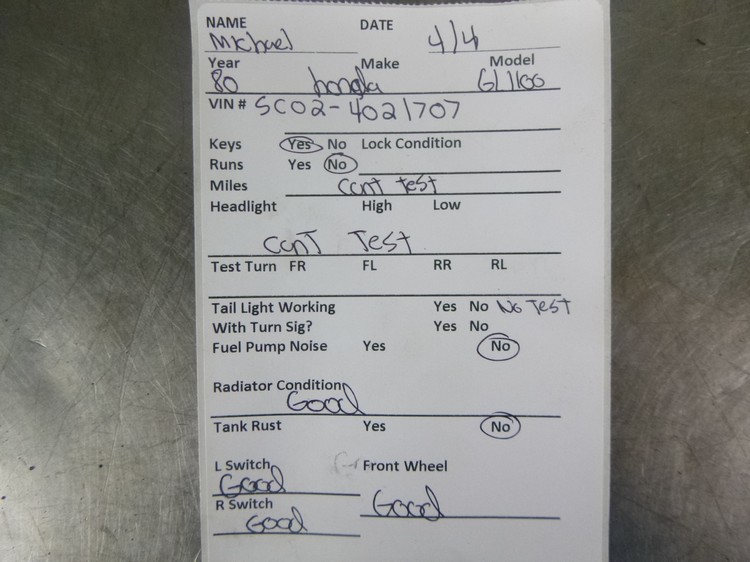 NAME DATE
Michael 4/4
Year Make Model
80 honda Gl 1100
VIN # SC02-4021707
Keys Yes No Lock Condition
Runs Yes No
Miles Cant test
Headlight High Low
Cant Test
Test Turn FR FL RR RL
Tail Light Working Yes No No Test
With Turn Sig? Yes No
Fuel Pump Noise Yes No
Radiator Condition
Good
Tank Rust Yes No
L Switch Front Wheel
Good
R Switch Good
Good